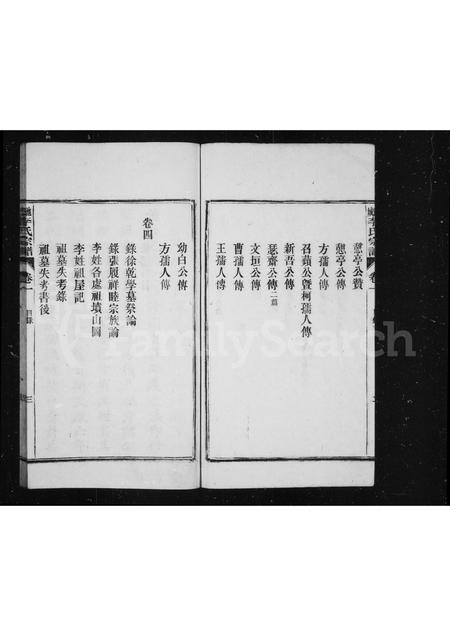 憇亭公贊
憇亭公傳
方孺人傳
召蘋公曁柯孺人傳
新吾公傳
瑟齋公傳二篇
文垣公傳
曹孺人傳
王孺人傳
幼白公傳
方孺人傳
卷四
錄徐乾學墓祭論
錄張履祥睦宗族論
李姓各處祖墳山圖
李姓祖屋記
祖墓失考錄
祖墓失考書後
李氏宗譜
卷一
目錄
三
FamilySearch